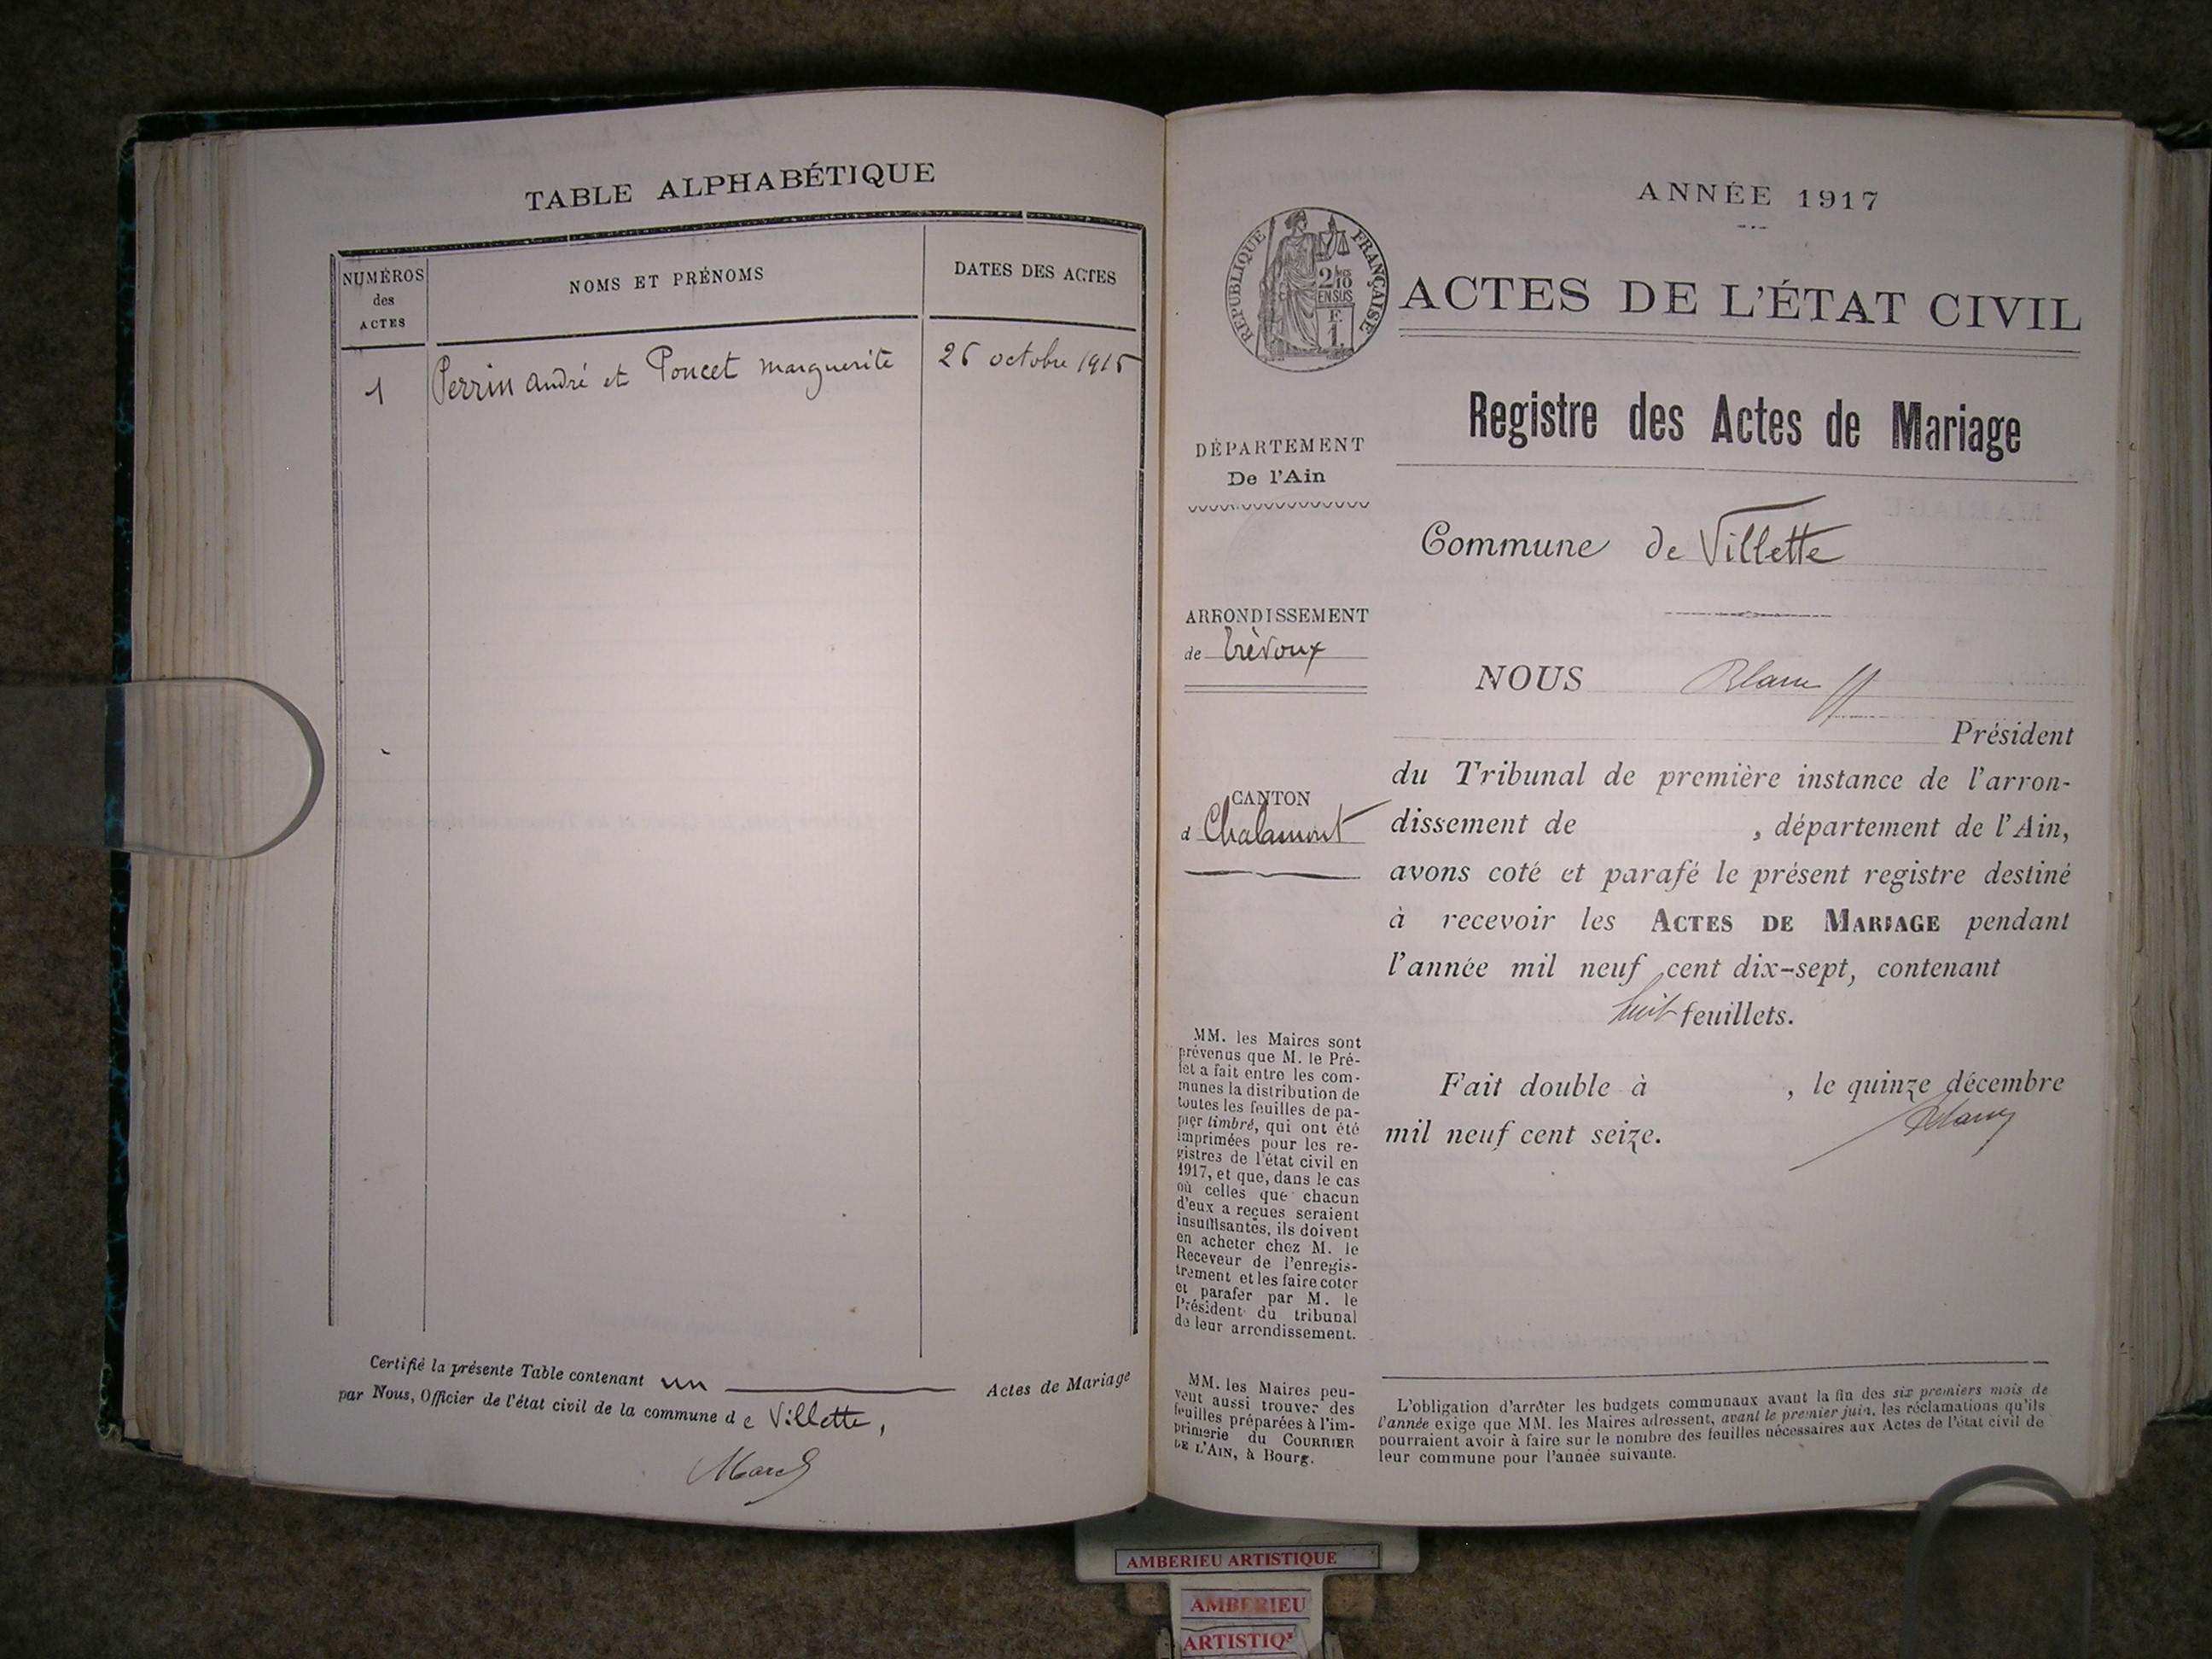 TABLE ALPHABÉTIQUE
NUMÉROS
des
ACTES
NOMS ET PRÉNOMS
DATES DES ACTES
1
Perrin André et Poncet Marguerite
octobre
Certifié la présente Table contenant un Actes de Mariage
par Nous, Officier de l'état civil de la commune de Villette,
ANNÉE 1917
RÉPUBLIQUE FRANÇAISE
2/10
EN SUS
F.
1.
ACTES DE L'ÉTAT CIVIL
Registre des Actes de Mariage
DÉPARTEMENT
De l'Ain
Commune de Villette
ARRONDISSEMENT
de Trévoux
NOUS
Président
du Tribunal de première instance de l'arron-
CANTON
d Chalamont
dissement de , département de l'Ain,
avons coté et parafé le présent registre destiné
à recevoir les ACTES DE MARIAGE pendant
l'année mil neuf cent dix-sept, contenant
huit feuillets.
Fait double à , le quinze décembre
mil neuf cent seize.
MM. les Maires sont
prévenus que M. le Pré-
fet a fait entre les com-
munes la distribution de
toutes les feuilles de pa-
pier timbré, qui ont été
imprimées pour les re-
gistres de l'état civil en
1917, et que, dans le cas
où celles que chacun
d'eux a reçues seraient
insuffisantes, ils doivent
en acheter chez M. le
Receveur de l'enregis-
trement et les faire coter
et parafer par M. le
Président du tribunal
de leur arrondissement.
MM. les Maires peu-
vent aussi trouver des
feuilles préparées à l'im-
primerie du COURRIER
DE L'AIN, à Bourg.
L'obligation d'arrêter les budgets communaux avant la fin des six premiers mois de
l'année exige que MM. les Maires adressent, avant le premier juin, les réclamations qu'ils
pourraient avoir à faire sur le nombre des feuilles nécessaires aux Actes de l'état civil de
leur commune pour l'année suivante.
AMBERIEU ARTISTIQUE
AMBERIEU
ARTISTIQ